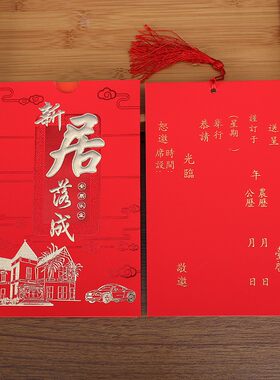 新居落成
送呈
謹訂于
農曆 月 日
公曆 年 月 日
(星期 )
舉行
恭請
光臨
時間
席設
恕邀
敬邀